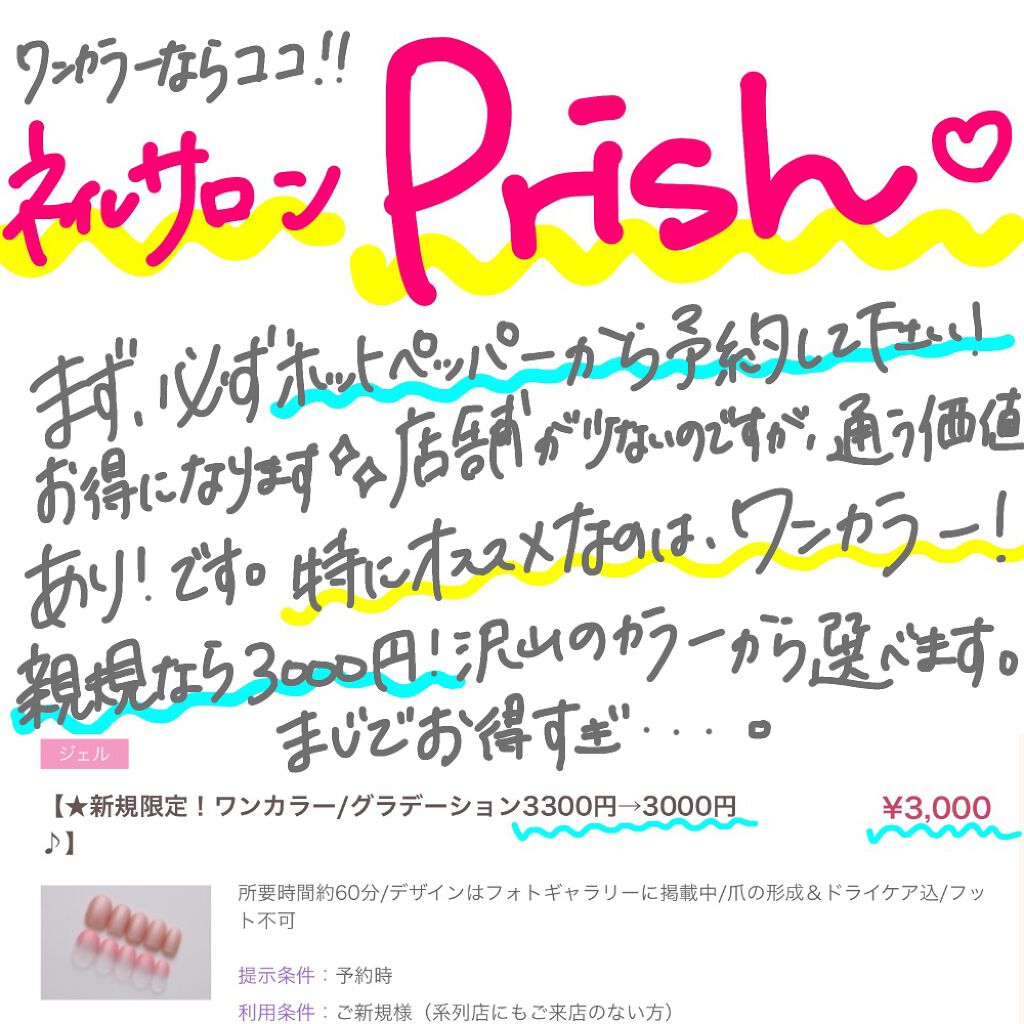 ワンカラーならココ!!
ネイルサロン Prish♡
まず、必ずホットペッパーから予約して下さい!
お得になります✧✧店舗が少ないのですが、通う価値
あり!です。特にオススメなのは、ワンカラー!
親規なら3000円!沢山のカラーから選べます。
まじでお得すぎ・・・・。
ジェル
【★新規限定！ワンカラー/グラデーション3300円→3000円 ¥3,000
♪】
所要時間約60分/デザインはフォトギャラリーに掲載中/爪の形成＆ドライケア込/フッ
ト不可
提示条件：予約時
利用条件：ご新規様（系列店にもご来店のない方）